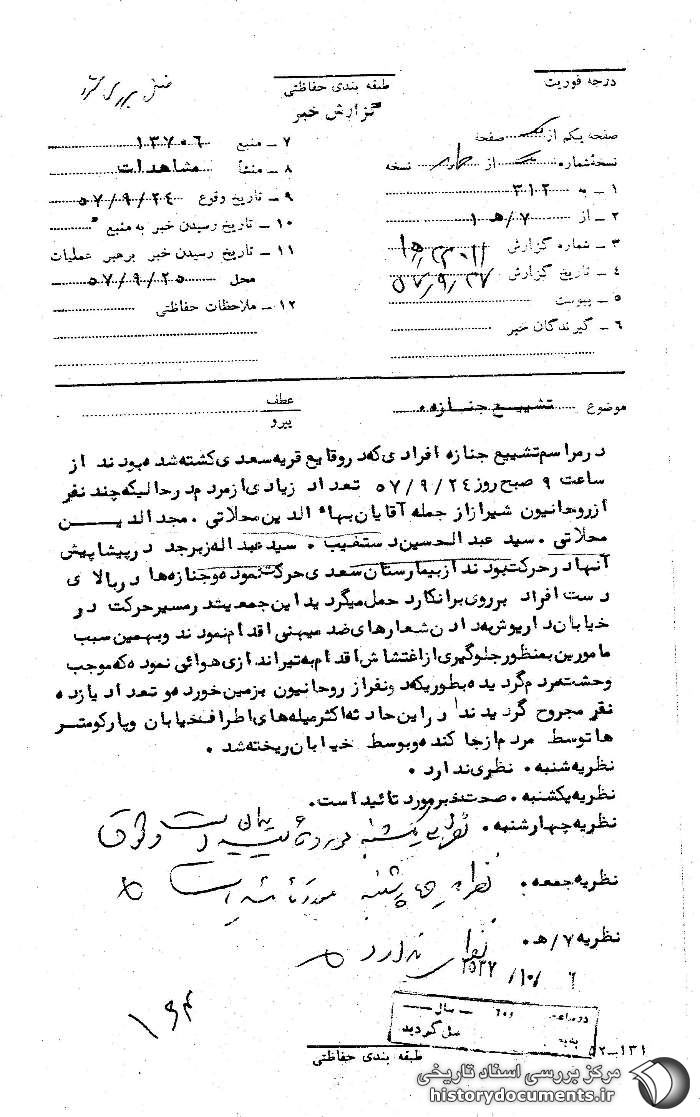 درجه فوریت
طبقه بندی حفاظتی
گزارش خبر
صفحه یکم از یک صفحه
نسخهٔ شماره یک از چهار نسخه
۱ - به ۳۱۲
۲ - از ۷/هـ ۱
۳ - شماره گزارش
۴ - تاریخ گزارش ۵۷/۹/۲۷
۵ - پیوست
۶ - گیرندگان خبر
۷ - منبع ۱۳۷۰۶
۸ - منشأ مشاهدات
۹ - تاریخ وقوع ۵۷/۹/۲۴
۱۰ - تاریخ رسیدن خبر به منبع
۱۱ - تاریخ رسیدن خبر برهبر عملیات
محل ۵۷/۹/۲۵
۱۲ - ملاحظات حفاظتی
موضوع تشییع جنازه ۰
عطف
پیرو
در مراسم تشییع جنازه افرادی که در وقایع قریه سعدی کشته شده بودند از
ساعت ۹ صبح روز ۵۷/۹/۲۴ تعداد زیادی از مردم در حالیکه چند نفر
از روحانیون شیراز از جمله آقایان بهاء الدین محلاتی ۰ مجد الدین
محلاتی ۰ سید عبد الحسین دستغیب ۰ سید عبد اله زبرجد در پیشاپیش
آنها در حرکت بودند از بیمارستان سعدی حرکت نموده و جنازه ها در بالای
دست افراد بر روی برانکارد حمل میگردید این جمعیت در مسیر حرکت در
خیابان داریوش به دادن شعارهای ضد میهنی اقدام نمودند و بهمین سبب
مامورین بمنظور جلوگیری از اغتشاش اقدام به تیراندازی هوائی نموده که موجب
وحشت مردم گردیده بطوریکه دو نفر از روحانیون بزمین خورده و تعداد یازده
نفر مجروح گردیدند در این حادثه اکثر میله های اطراف خیابان و پارکومتر
ها توسط مردم از جا کنده و بوسط خیابان ریخته شد ۰
نظریه شنبه ۰ نظری ندارد ۰
نظریه یکشنبه ۰ صحت خبر مورد تائید است ۰
نظریه چهارشنبه ۰ نظریه یکشنبه مورد تائید است
نظریه جمعه ۰ نظریه چهارشنبه مورد تائید است
نظریه ۷/هـ ۰ نظری ندارد
۲۵۳۷/۱۰/۶
۱۶۴
طبقه بندی حفاظتی
۵۲-۱۳۱
مرکز بررسی اسناد تاریخی
historydocuments.ir